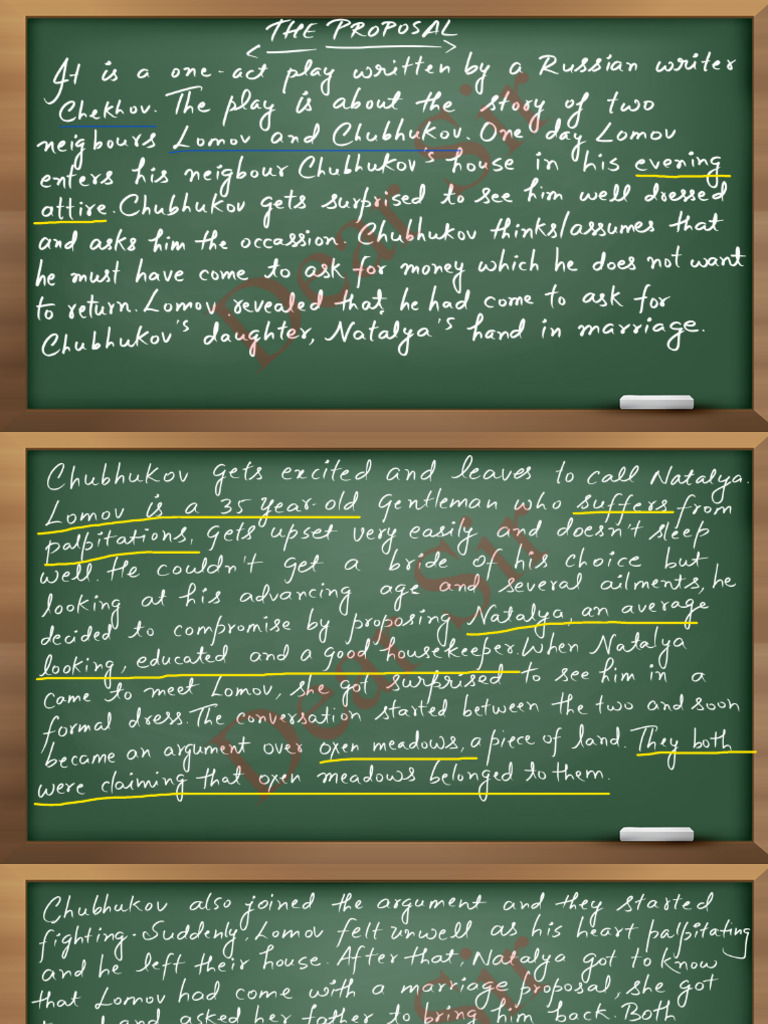 THE PROPOSAL
It is a one-act play written by a Russian writer
Chekhov. The play is about the story of two
neigbours Lomov and Chubhukov. One day Lomov
enters his neigbour Chubhukov's house in his evening
attire. Chubhukov gets surprised to see him well dressed
and asks him the occassion. Chubhukov thinks/assumes that
he must have come to ask for money which he does not want
to return. Lomov revealed that he had come to ask for
Chubhukov's daughter, Natalya's hand in marriage.
Chubhukov gets excited and leaves to call Natalya.
Lomov is a 35 year-old gentleman who suffers from
palpitations, gets upset very easily and doesn't sleep
well. He couldn't get a bride of his choice but
looking at his advancing age and several ailments, he
decided to compromise by proposing Natalya, an average
looking, educated and a good housekeeper. When Natalya
came to meet Lomov, she got surprised to see him in a
formal dress. The conversation started between the two and soon
became an argument over oxen meadows, a piece of land. They both
were claiming that oxen meadows belonged to them.
Chubhukov also joined the argument and they started
fighting. Suddenly, Lomov felt unwell as his heart palpitating
and he left their house. After that, Natalya got to know
that Lomov had come with a marriage proposal, she got
and asked her father to bring him back. Both
Dear Sir
Dear Sir
Sir